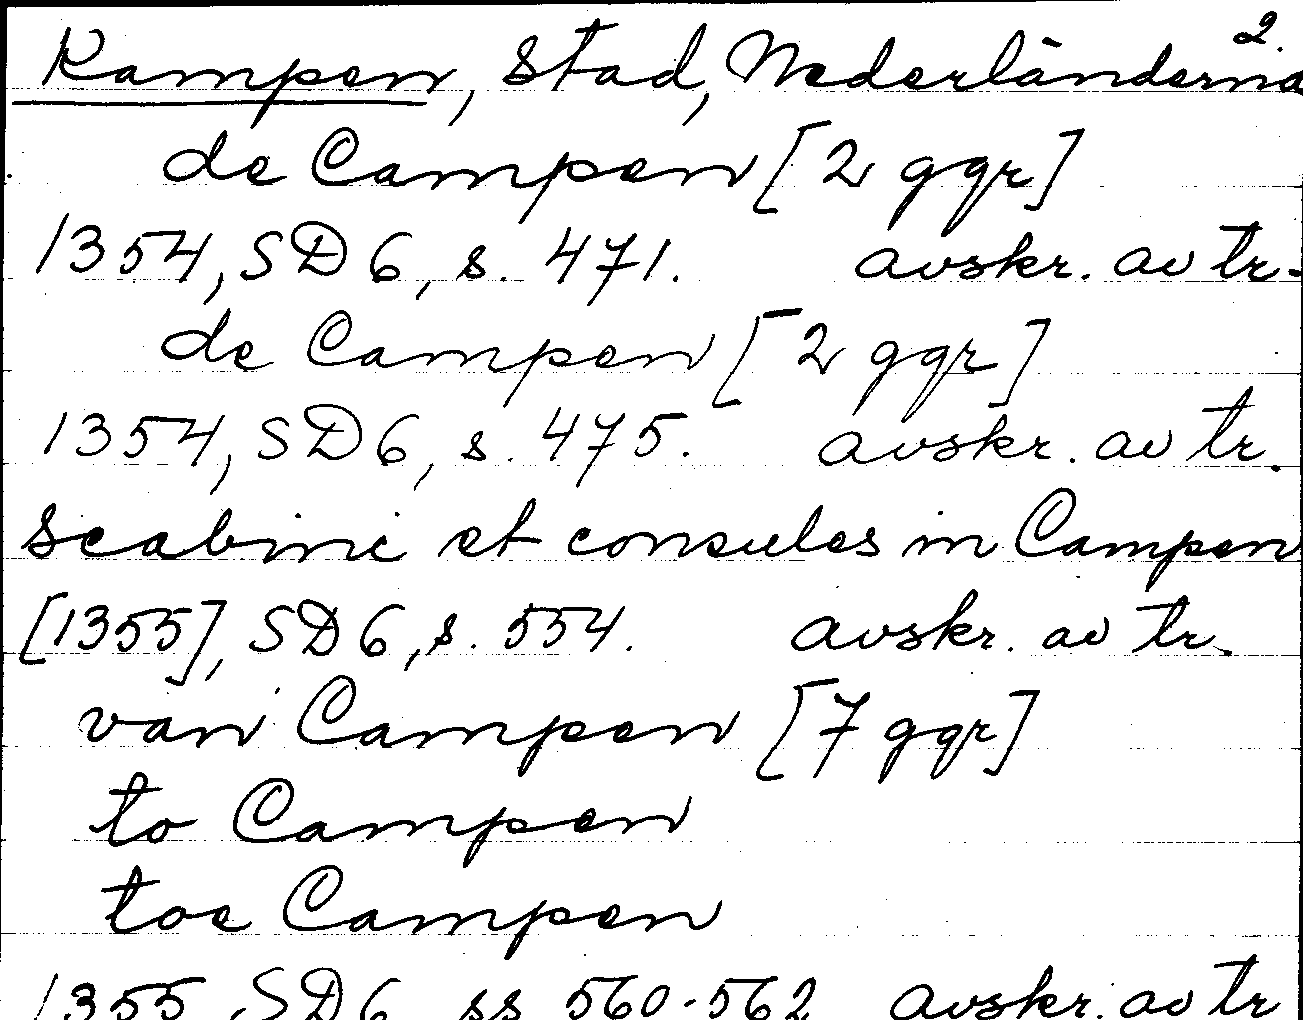 2.
Kampen, stad, Nederländerna
de Campen [2 ggr]
1354, SD 6, s. 471. avskr. av tr.
de Campen [2 ggr]
1354, SD 6, s. 475. avskr. av tr.
scabini et consules in Campen
[1355], SD 6, s. 554. avskr. av tr.
van Campen [7 ggr]
to Campen
toe Campen
1355, SD 6 ss 560-562 avskr. av tr